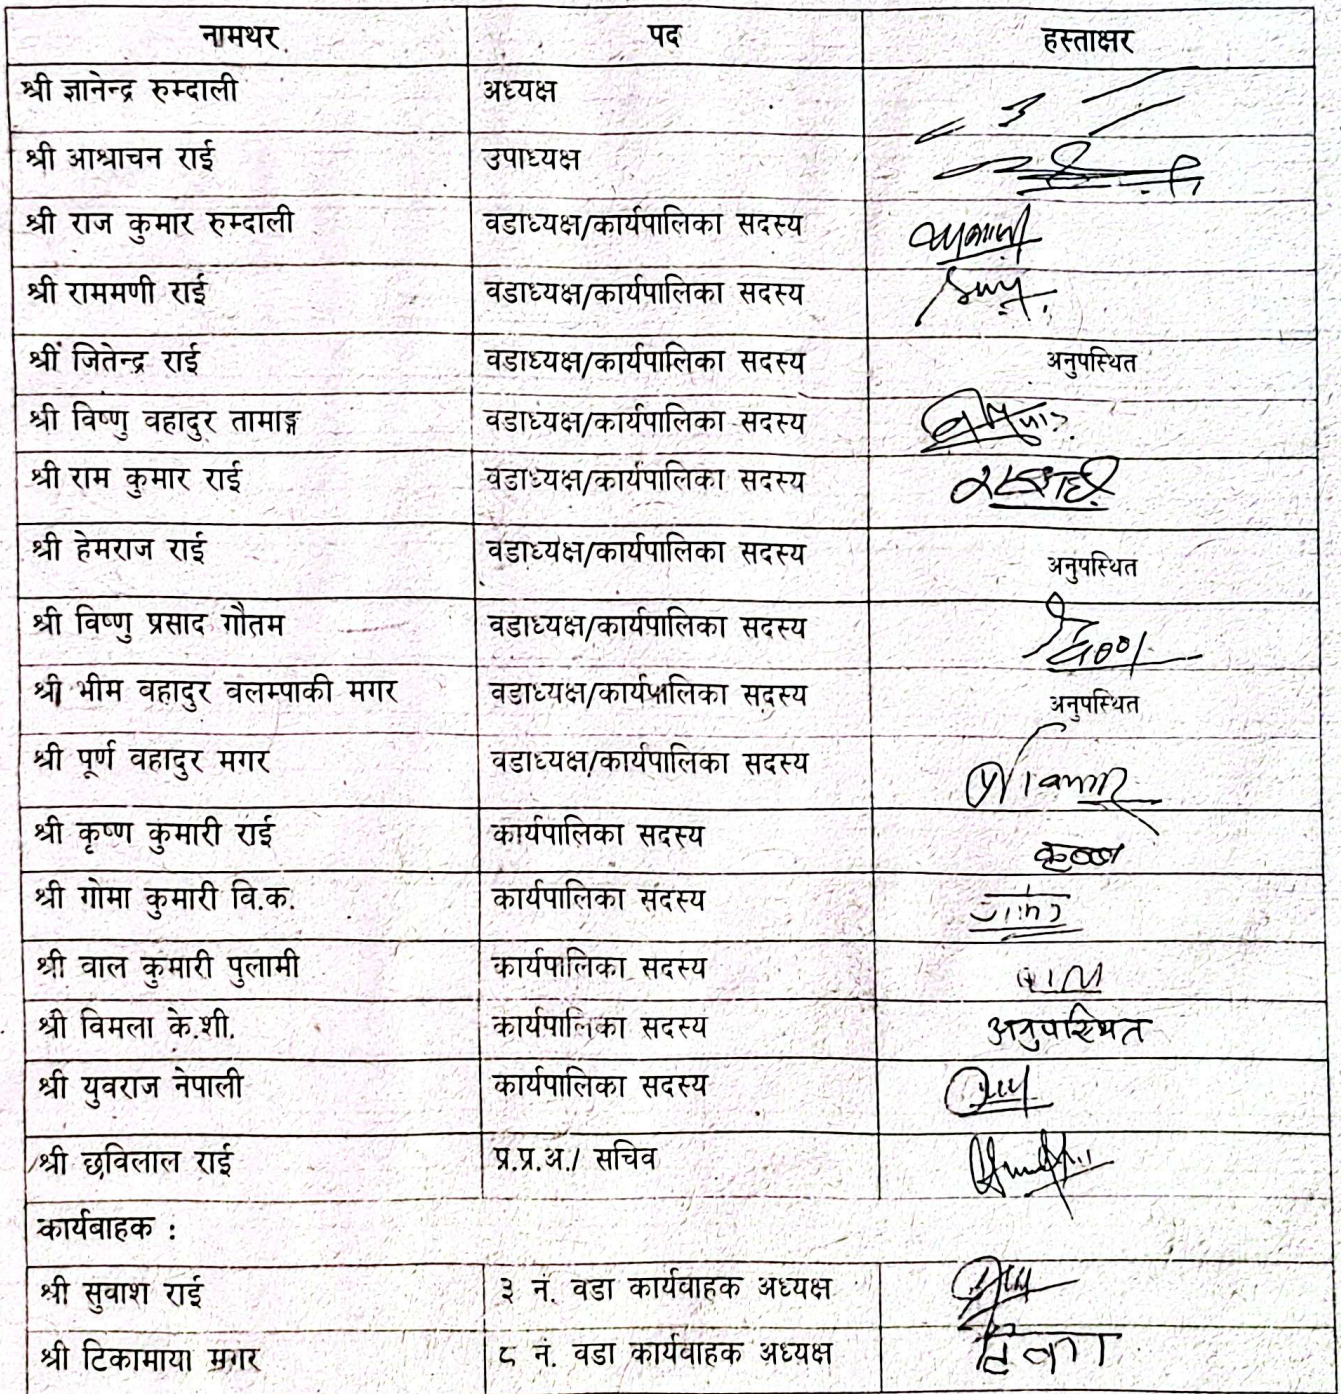 नामथर पद हस्ताक्षर
श्री ज्ञानेन्द्र रुम्दाली अध्यक्ष
श्री आश्राचन राई उपाध्यक्ष
श्री राज कुमार रुम्दाली वडाध्यक्ष/कार्यपालिका सदस्य
श्री राममणी राई वडाध्यक्ष/कार्यपालिका सदस्य
श्रीं जितेन्द्र राई वडाध्यक्ष/कार्यपालिका सदस्य अनुपस्थित
श्री विष्णु वहादुर तामाङ्ग वडाध्यक्ष/कार्यपालिका सदस्य
श्री राम कुमार राई वडाध्यक्ष/कार्यपालिका सदस्य
श्री हेमराज राई वडाध्यक्ष/कार्यपालिका सदस्य अनुपस्थित
श्री विष्णु प्रसाद गौतम वडाध्यक्ष/कार्यपालिका सदस्य
श्री भीम वहादुर वलम्पाकी मगर वडाध्यक्ष/कार्यपालिका सदस्य अनुपस्थित
श्री पूर्ण वहादुर मगर वडाध्यक्ष/कार्यपालिका सदस्य
श्री कृष्ण कुमारी राई कार्यपालिका सदस्य कृष्ण
श्री गोमा कुमारी वि.क. कार्यपालिका सदस्य
श्री वाल कुमारी पुलामी कार्यपालिका सदस्य
श्री विमला के.शी. कार्यपालिका सदस्य अनुपस्थित
श्री युवराज नेपाली कार्यपालिका सदस्य
श्री छविलाल राई प्र.प्र.अ./ सचिव
कार्यबाहक :
श्री सुवाश राई ३ नं. वडा कार्यवाहक अध्यक्ष
श्री टिकामाया मगर ८ नं. वडा कार्यवाहक अध्यक्ष टिका